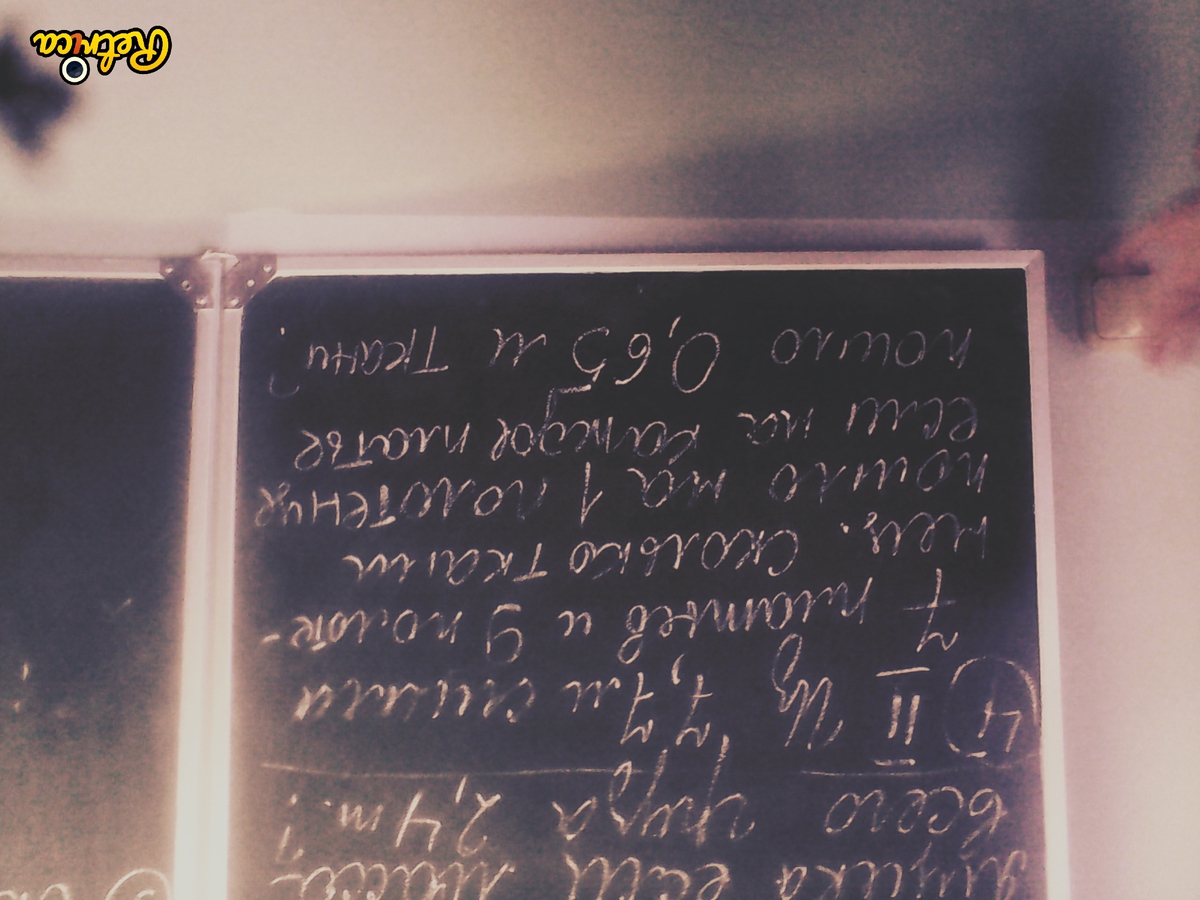 ящика если масса
всего груза 2,4 т.?
4 II Из 7,7 м сшила
7 платьев и 9 полоте-
нец. сколько ткани
пошло на 1 полотенце
если на каждое платье
пошло 0,65 м ткани?
Retrica